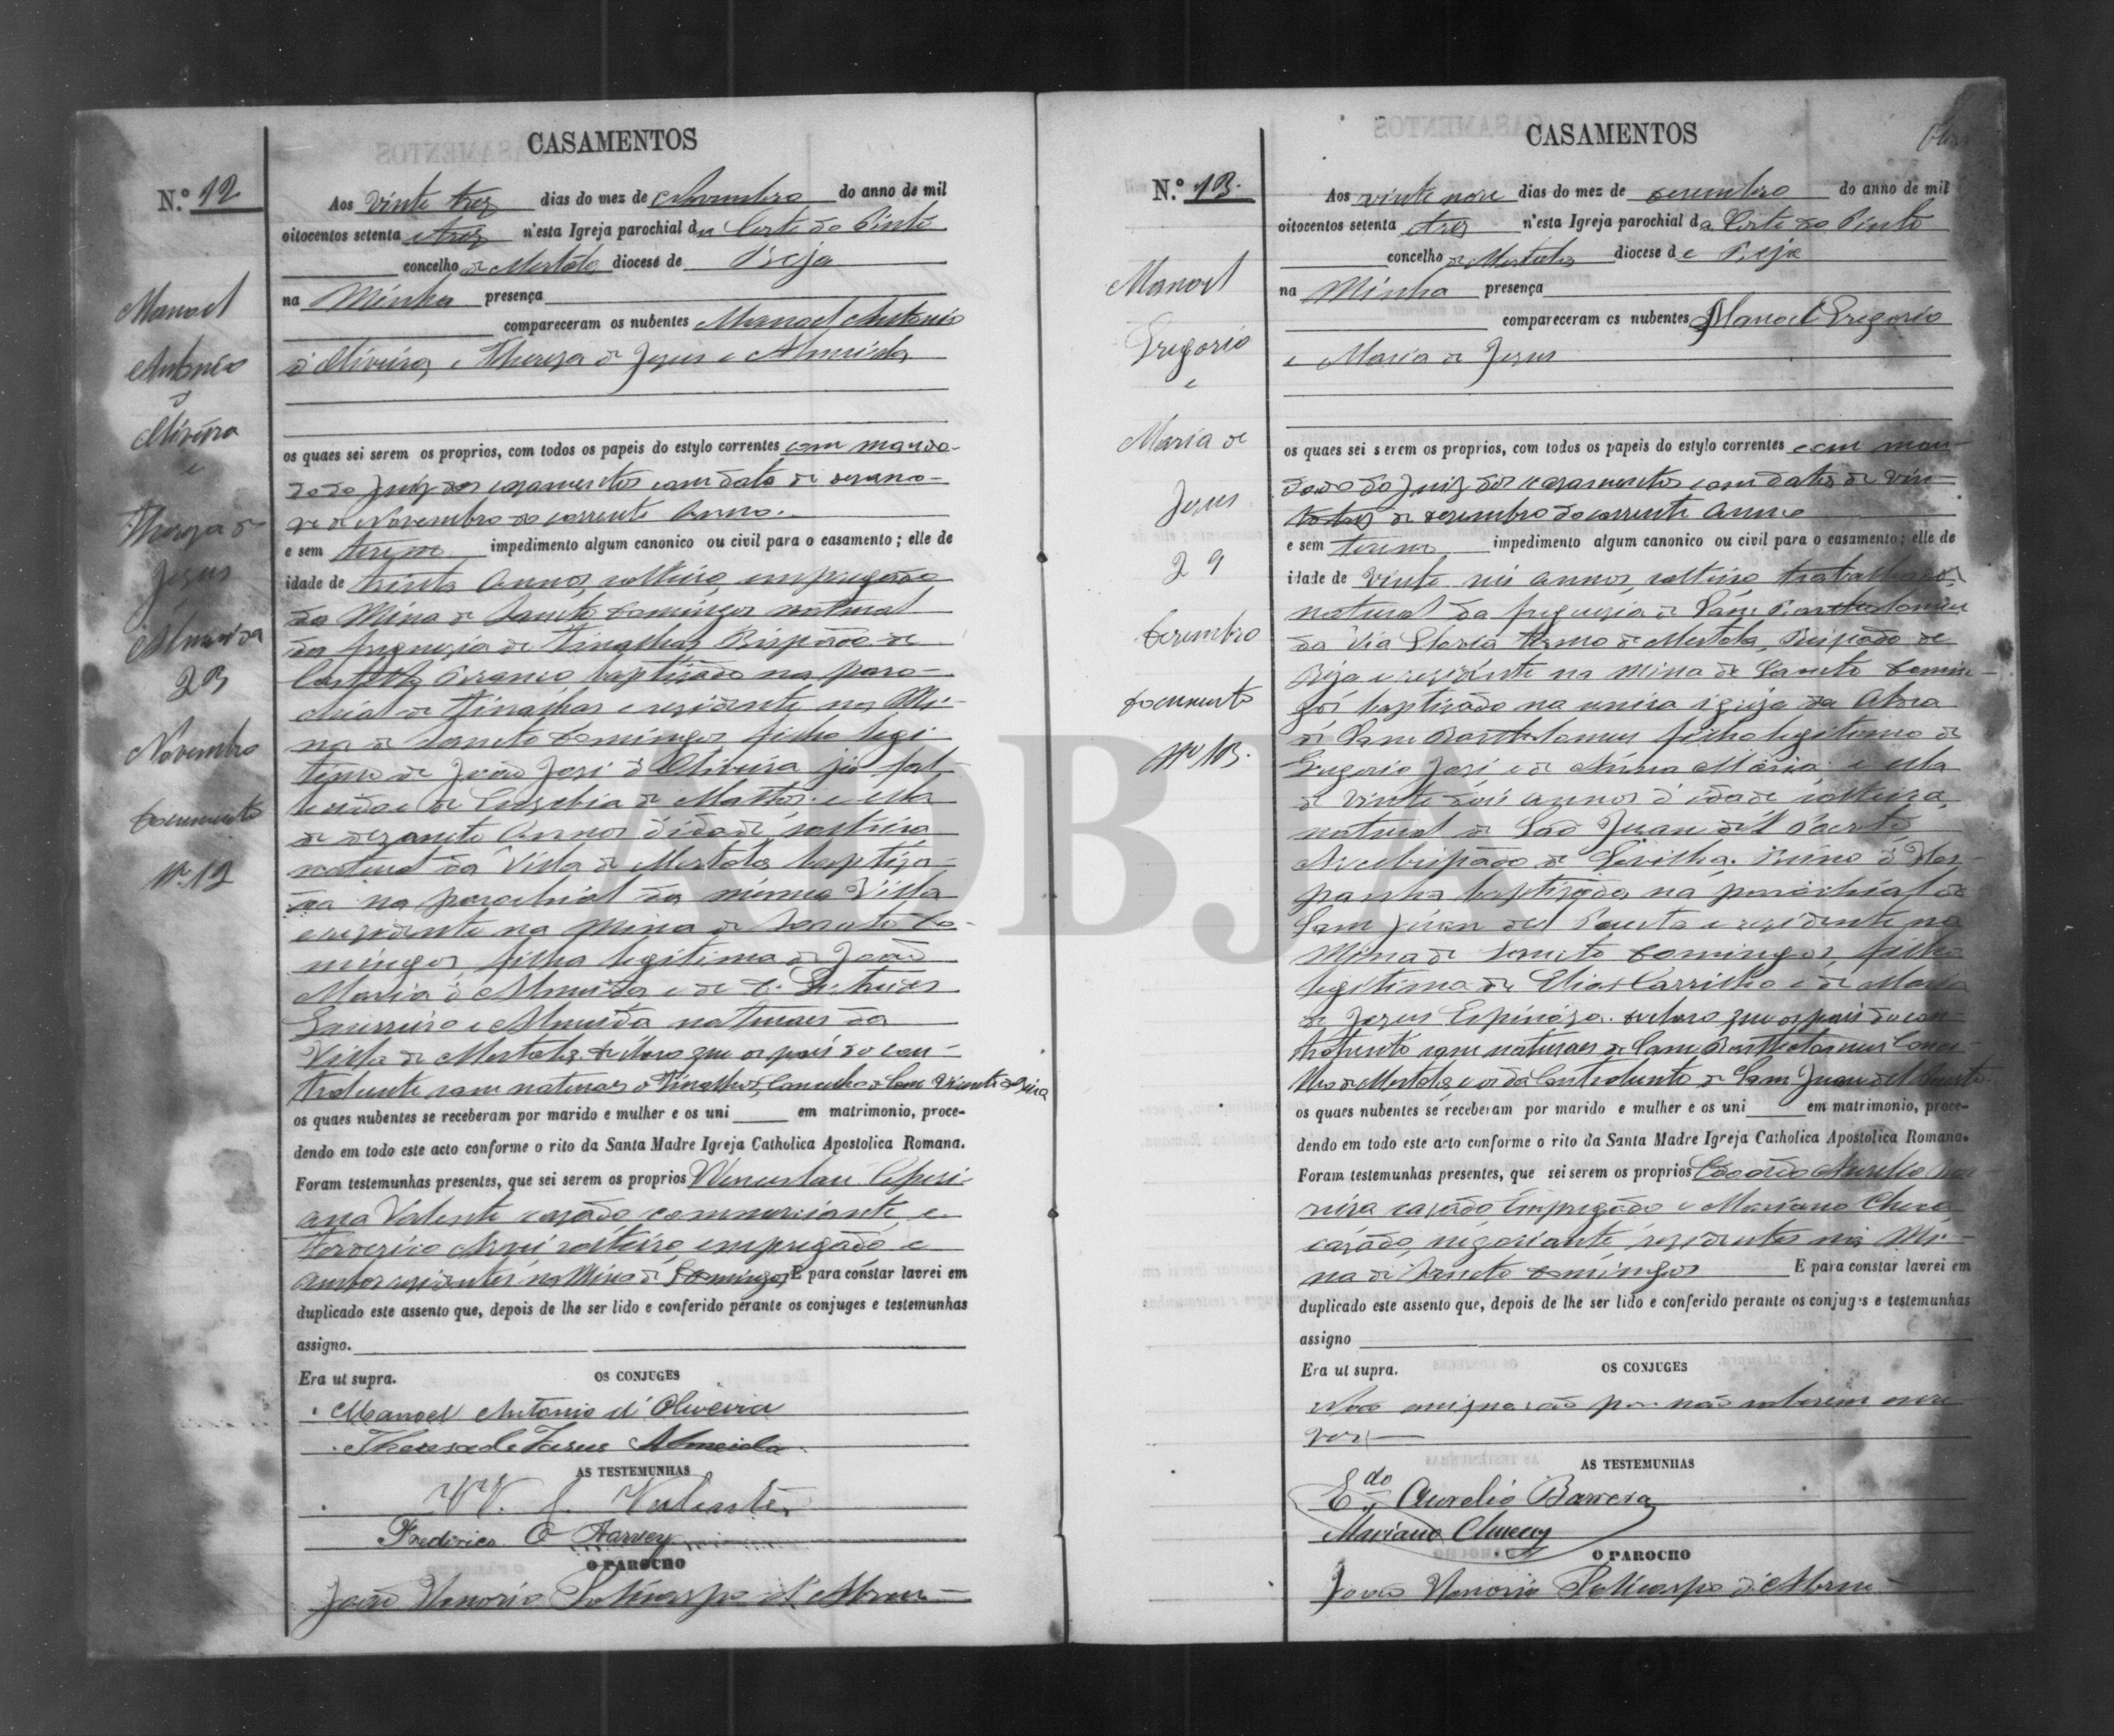 CASAMENTOS
N.º 12
Aos vinte trez dias do mez de Novembro do anno de mil
oitocentos setenta e trez n'esta Igreja parochial da Corte do Pinto
concelho de Mertola diocese de Beja
na Minha presença
compareceram os nubentes Manoel Antonio
d'Oliveira e Thereza de Jezus e Almeida
os quaes sei serem os proprios, com todos os papeis do estylo correntes com manda-
do do Juiz dos cazamentos com data de dezano-
ve de Novembro do corrente Anno.
e sem terem impedimento algum canonico ou civil para o casamento; elle de
idade de trinta Annos, solteiro, empregado
da Mina de Sancto Domingos natural
da freguezia de Tinalhas Bispado de
Castello Branco, baptizado na paro-
chial de Tinalhas e rezidente na Mi-
na de Sancto Domingos filho legi
timo de João José d'Oliveira já fal-
lecido e de Euzebia de Mattos. e ella
de dezaneto Annos d'idade, solteira
natural da Villa de Mertola baptiza-
da na parochial da mesma Villa
e rezidente na Mina de Sancto Do-
mingos, filha legitima de João
Maria d'Almeida e de D.
Guerreiro e Almeida naturaes da
Villa de Mertola. declaro que os pais do con-
trahente sam naturaes de Tinalhas, Concelho de Sam Vicente da Beira
os quaes nubentes se receberam por marido e mulher e os uni em matrimonio, proce-
dendo em todo este acto conforme o rito da Santa Madre Igreja Catholica Apostolica Romana.
Foram testemunhas presentes, que sei serem os proprios Wenceslau
Valente cazado commerciante e
solteiro, empregado e
ambos rezidentes na Mina de S. Domingos E para constar lavrei em
duplicado este assento que, depois de lhe ser lido e conferido perante os conjuges e testemunhas
assigno.
Era ut supra.
OS CONJUGES
Manoel Antonio d'Oliveira
Thereza de Jezus Almeida
AS TESTEMUNHAS
W. C. Valente
Frederico O Harvey
O PAROCHO
João Honorio Policarpo d'Abreu
Manoel
Antonio
d'
Oliveira
e
Thereza de
Jezus
e
Almeida
23
Novembro
Documento
Nº 12
CASAMENTOS
N.º 13.
Aos vinte nove dias do mez de Dezembro do anno de mil
oitocentos setenta e trez n'esta Igreja parochial da Corte do Pinto
concelho de Mertola diocese de Beja
na Minha presença
compareceram os nubentes Manoel Gregorio
e Maria de Jezus
os quaes sei serem os proprios, com todos os papeis do estylo correntes com man-
dado do Juiz dos cazamentos com data de vin
te trez de Dezembro do corrente Anno
e sem terem impedimento algum canonico ou civil para o casamento; elle de
idade de vinte seis annos, solteiro, trabalhador
natural da freguezia de Sam Bartholomeu
da Via Gloria termo de Mertola, Bispado de
Beja e rezidente na Mina de Sancto Domin-
gos baptizado na unica igreja da Aldea
de Sam Bartholomeu filho legitimo de
Gregorio José e de Anna Maria: e ella
de vinte dois annos d'idade solteira,
natural de São Juan del Puerto
Arcebispado de Sevilha. Reino d'Hes-
panha baptizada na parochial de
Sam Juan del Puerto e rezidente na
Mina de Sancto Domingos, filha
legitima de Elias Carrilho e de Maria
de Jezus Espinoza. declaro que os pais do con-
trahente sam naturaes de Sam Bartholomeu Conce
lho de Mertola e os da Contrahente de Sam Juan del Puerto
os quaes nubentes se receberam por marido e mulher e os uni em matrimonio, proce-
dendo em todo este acto conforme o rito da Santa Madre Igreja Catholica Apostolica Romana.
Foram testemunhas presentes, que sei serem os proprios Eduardo Aurelio Bar
reira cazado Empregado e Mariano
cazado, negociante, rezidentes na Mi-
na de Sancto Domingos E para constar lavrei em
duplicado este assento que, depois de lhe ser lido e conferido perante os conjuges e testemunhas
assigno
Era ut supra.
OS CONJUGES
Não assignarão por não saberem escre
ver.
AS TESTEMUNHAS
Edo Aurelio Barrera
Mariano
O PAROCHO
João Honorio Policarpo d'Abreu
Manoel
Gregorio
e
Maria de
Jezus
29
Dezembro
Documento
Nº 13.
ADBJA